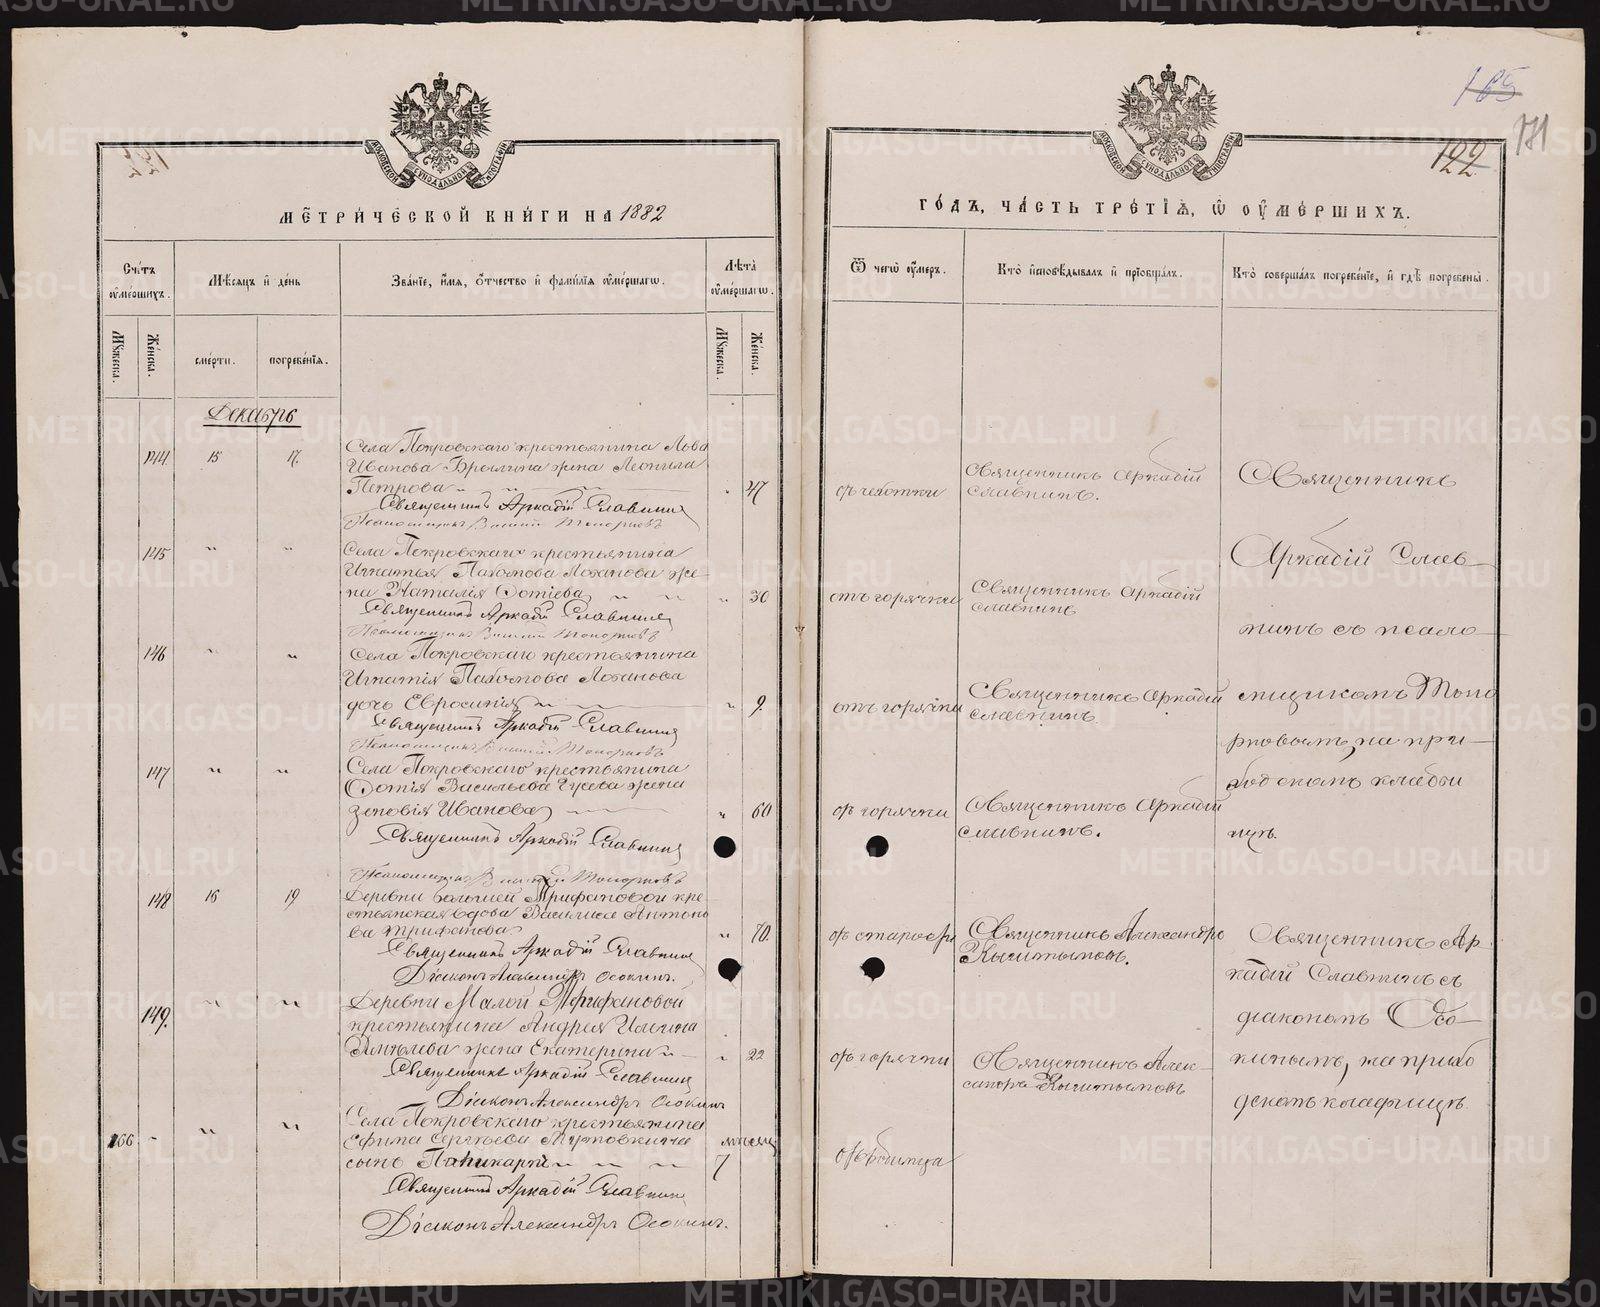 165
171
122
МОСКОВСКОЙ СѴНОДАЛЬНОЙ ТИПОГРАФІИ
МЕТРИЧЕСКОЙ КНИГИ НА 1882
Счетъ умершихъ.
Мѣсяцъ и день
Званіе, имя, отчество и фамилія умершагѡ.
Лѣта умершагѡ.
Мужеска.
Женска.
смерти.
погребенія.
Мужеска.
Женска.
Декабрь
144 15 17.
Села Покровскаго крестьянина Льва
Иванова Брылина жена Леонила
Петрова 47
Священникъ Аркадій Славнинъ
Псаломщикъ Топорковъ
145 " "
Села Покровскаго крестьянина
Игнатья Пахомова Лоханова же-
на Наталія Фотіева " 30
Священникъ Аркадій Славнинъ
Псаломщикъ Топорковъ
146 " "
Села Покровскаго крестьянина
Игнатія Пахомова Лоханова
дочь Евросинія " 9.
Священникъ Аркадій Славнинъ
Псаломщикъ Топорковъ
147 " "
Села Покровскаго крестьянина
Фотія Васильева Гусева жена
Зеновія Иванова " 60
Священникъ Аркадій Славнинъ
Псаломщикъ Топорковъ
148 16 19
Деревни большей Трифановой кре-
стьянская вдова Василиса Антоно
ва Трифанова " 70.
Священникъ Аркадій Славнинъ
Діаконъ Александръ Осокинъ.
149. " "
Деревни Малой Трифановой
крестьянина Андрея Ильина
жена Екатерина " 22
Священникъ Аркадій Славнинъ
Діаконъ Александръ Осокинъ
166 - " "
Села Покровскаго крестьянина
Ефима Сергѣева мѣсяц
сынъ 7
Священникъ Аркадій Славнинъ
Діаконъ Александръ Осокинъ.
ГОДЪ, ЧАСТЬ ТРЕТІЯ, Ѡ УМЕРШИХЪ.
Ѿ чегѡ умеръ.
Кто исповѣдывалъ и пріобщалъ.
Кто совершалъ погребеніе, и гдѣ погребены.
отъ чахотки
Священникъ Аркадій
Славнинъ.
отъ горячки
Священникъ Аркадій
Славнинъ
отъ горячки
Священникъ Аркадій
Славнинъ.
отъ горячки
Священникъ Аркадій
Славнинъ.
Священникъ
Аркадій Слав-
нинъ съ псало-
мщикомъ Топо
рковымъ, на при-
ходскомъ кладби
щѣ.
отъ старости
Священникъ Александръ
Кыштымовъ.
отъ горячки
Священникъ Алек-
сандръ Кыштымовъ
отъ родимца
Священникъ Ар
кадій Славнинъ съ
діакономъ Осо-
кинымъ, на прихо
дскомъ кладбищѣ.
METRIKI.GASO-URAL.RU